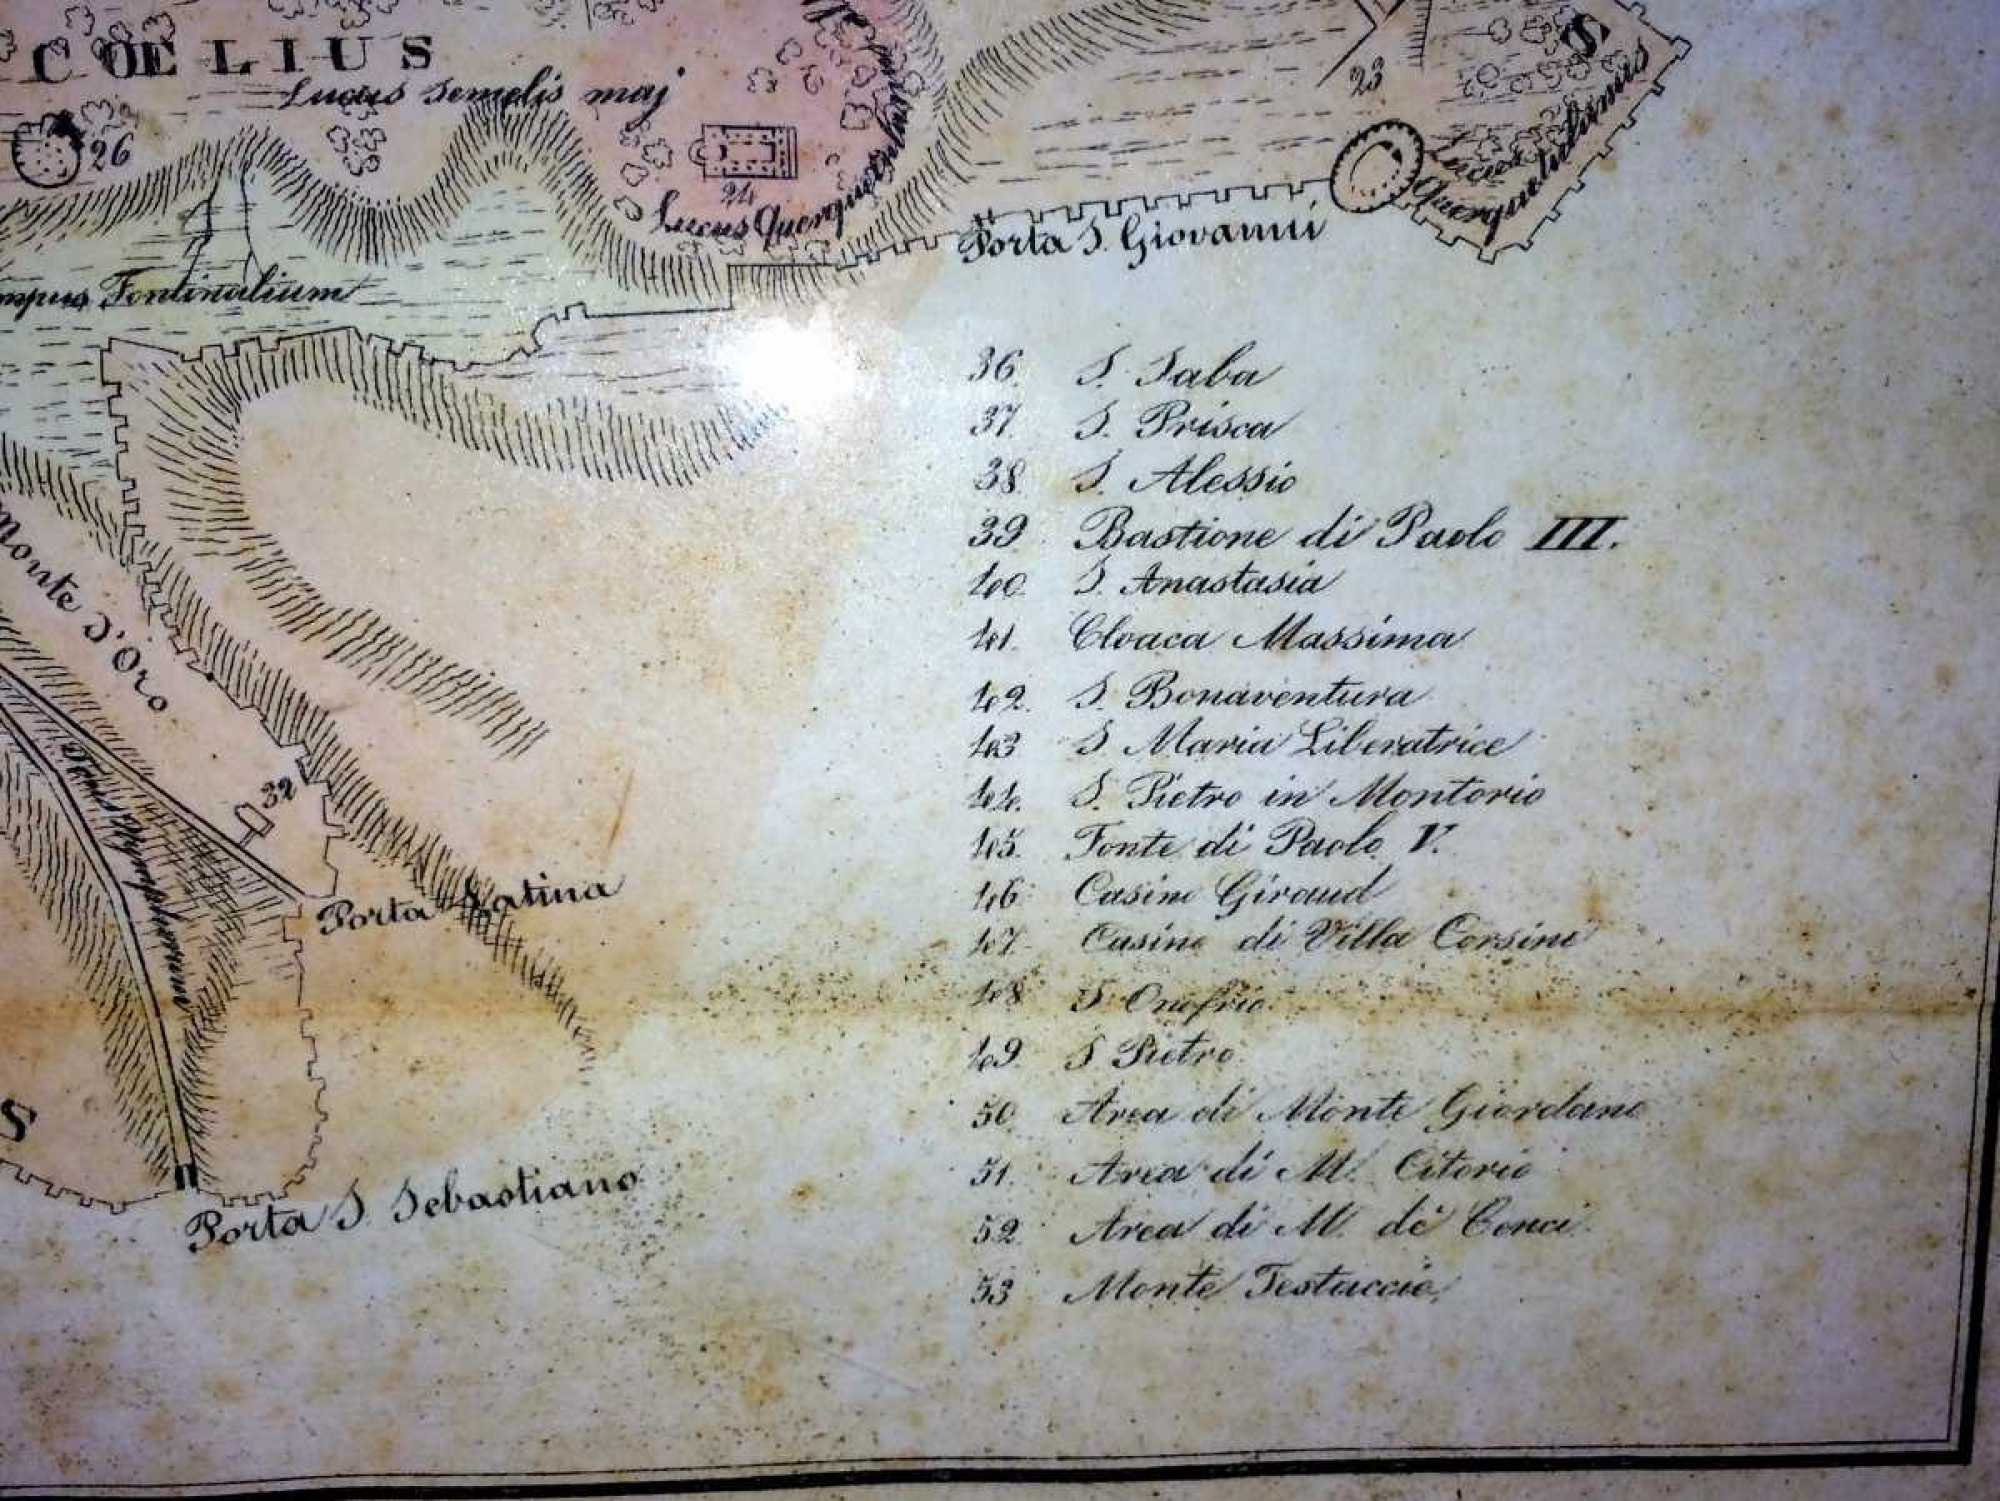 COELIUS
Lucus Semelis maj
26
23
24
Lucus
Lucus
Querquetulanus
Porta S. Giovanni
Fontinalium
Monte d'Oro
32
Porta Latina
S
S
Porta S. Sebastiano
36. S. Saba
37. S. Prisca
38. S. Alessio
39. Bastione di Paolo III.
40. S. Anastasia
41. Cloaca Massima
42. S. Bonaventura
43 S Maria Liberatrice
44. S. Pietro in Montorio
45. Fonte di Paolo V.
46 Casino Giraud
47. Casino di Villa Corsini
48 S Onofrio.
49 S Pietro.
50. Area di Monte Giordano
51. Area di M. Citorio
52. Area di M. de' Cenci.
53 Monte Testaccio.